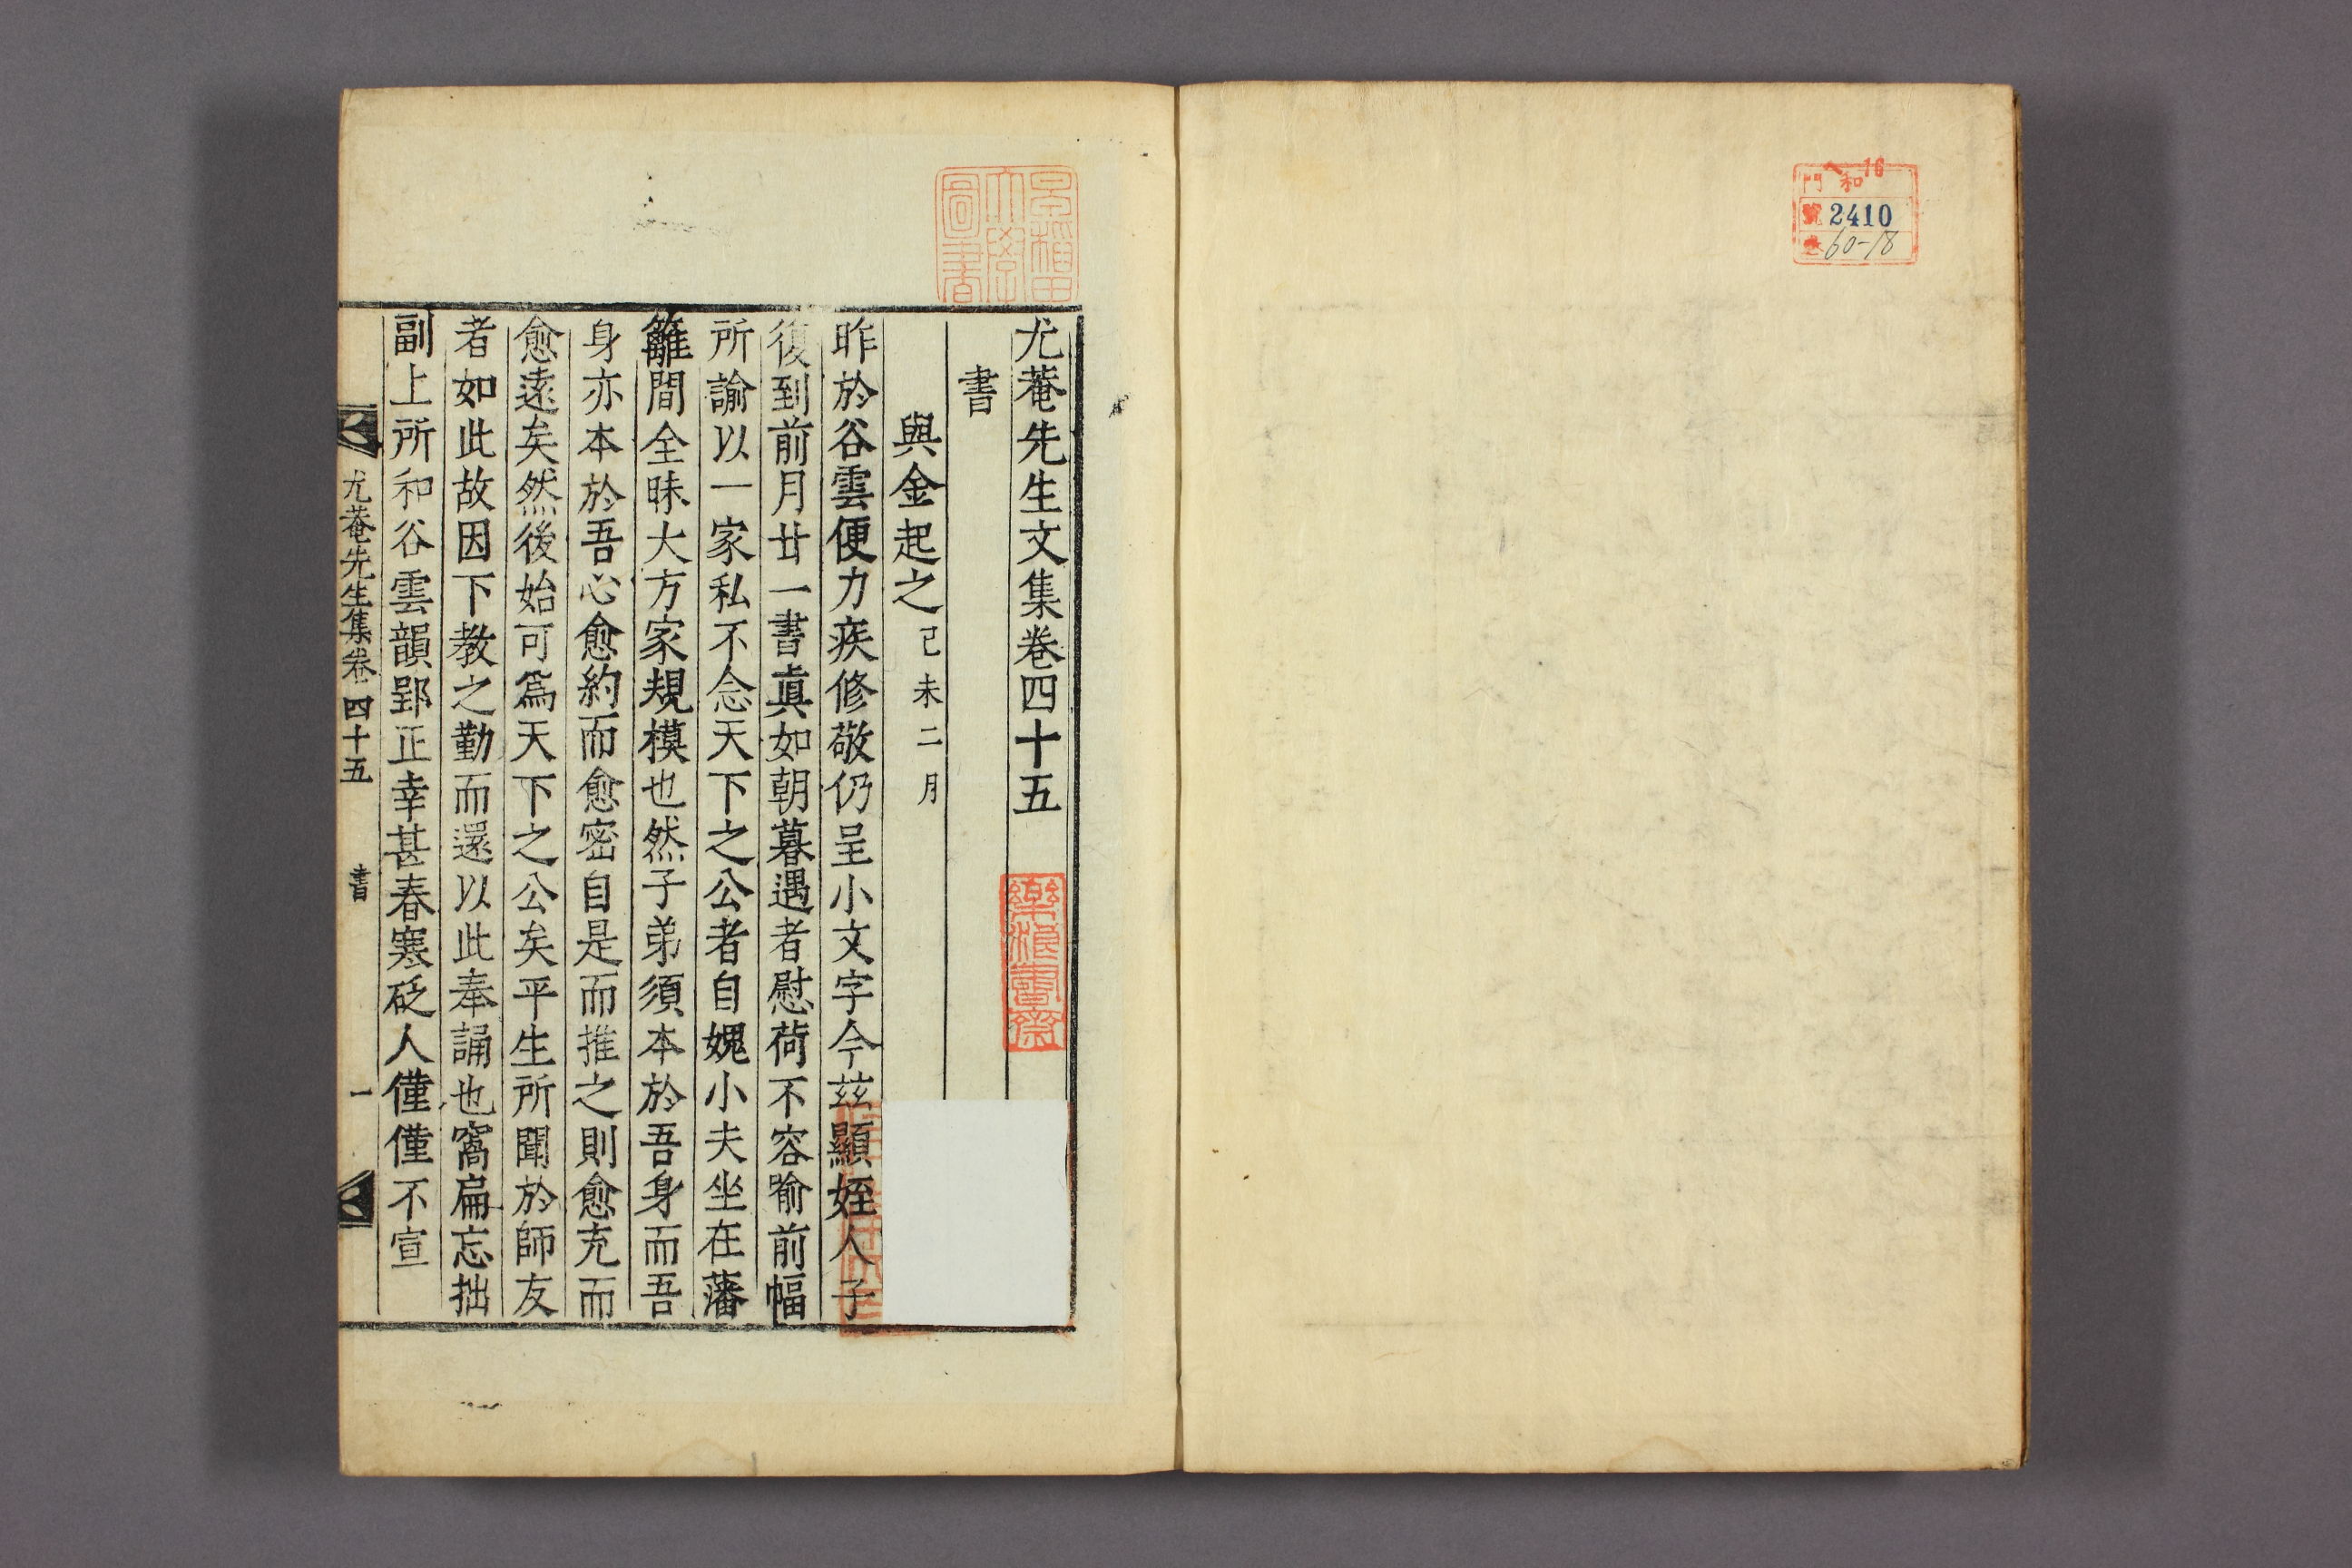 へ16
門 和
號 2410
卷 60-18
早稻田
大學
圖書
尤菴先生文集卷四十五
樂浪書齋
書
與金起之 己未二月
昨於谷雲便力疾修敬仍呈小文字今玆顯姪人子
復到前月廿一書眞如朝暮遇者慰荷不容喩前幅
所諭以一家私不念天下之公者自媿小夫坐在藩
籬間全昧大方家規模也然子弟須本於吾身而吾
身亦本於吾心愈約而愈密自是而推之則愈充而
愈遠矣然後始可爲天下之公矣平生所聞於師友
者如此故因下敎之勤而還以此奉誦也窩扁忘拙
副上所和谷雲韻郢正幸甚春寒砭人僅僅不宣
尤菴先生集卷四十五 書 一